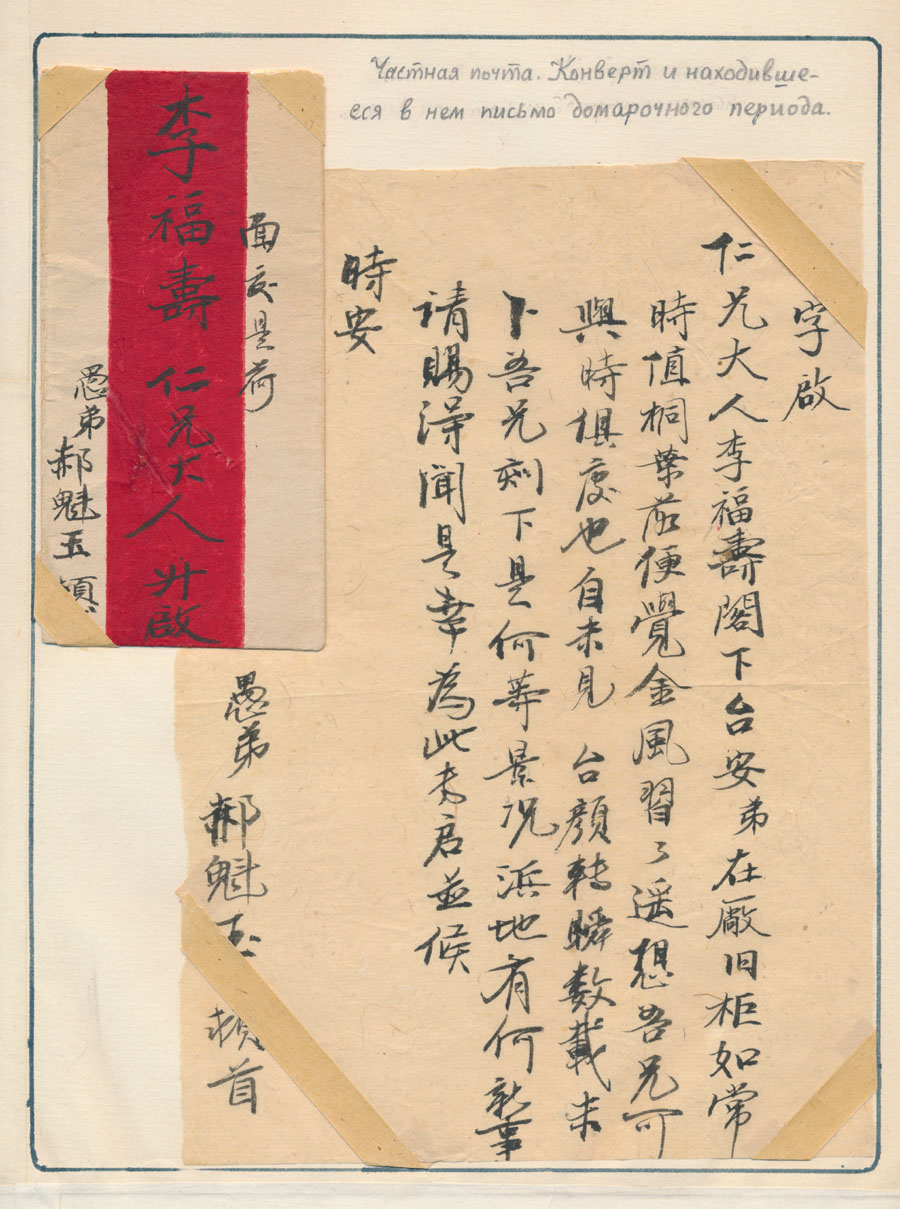 Частная почта. Конверт и находивше-
еся в нем письмо домарочного периода.
面交是荷
李福壽仁兄大人升啟
愚弟郝魁玉頓
字啟
仁兄大人李福壽閣下台安弟在廠旧柜如常
時值桐葉落便覺金風習々遥想吾兄可
與時俱度也自未見 台顔轉瞬数載未
卜吾兄刻下是何等景况浜地有何新事
請賜得聞是幸為此专启並候
時安
愚弟 郝魁玉 頓首